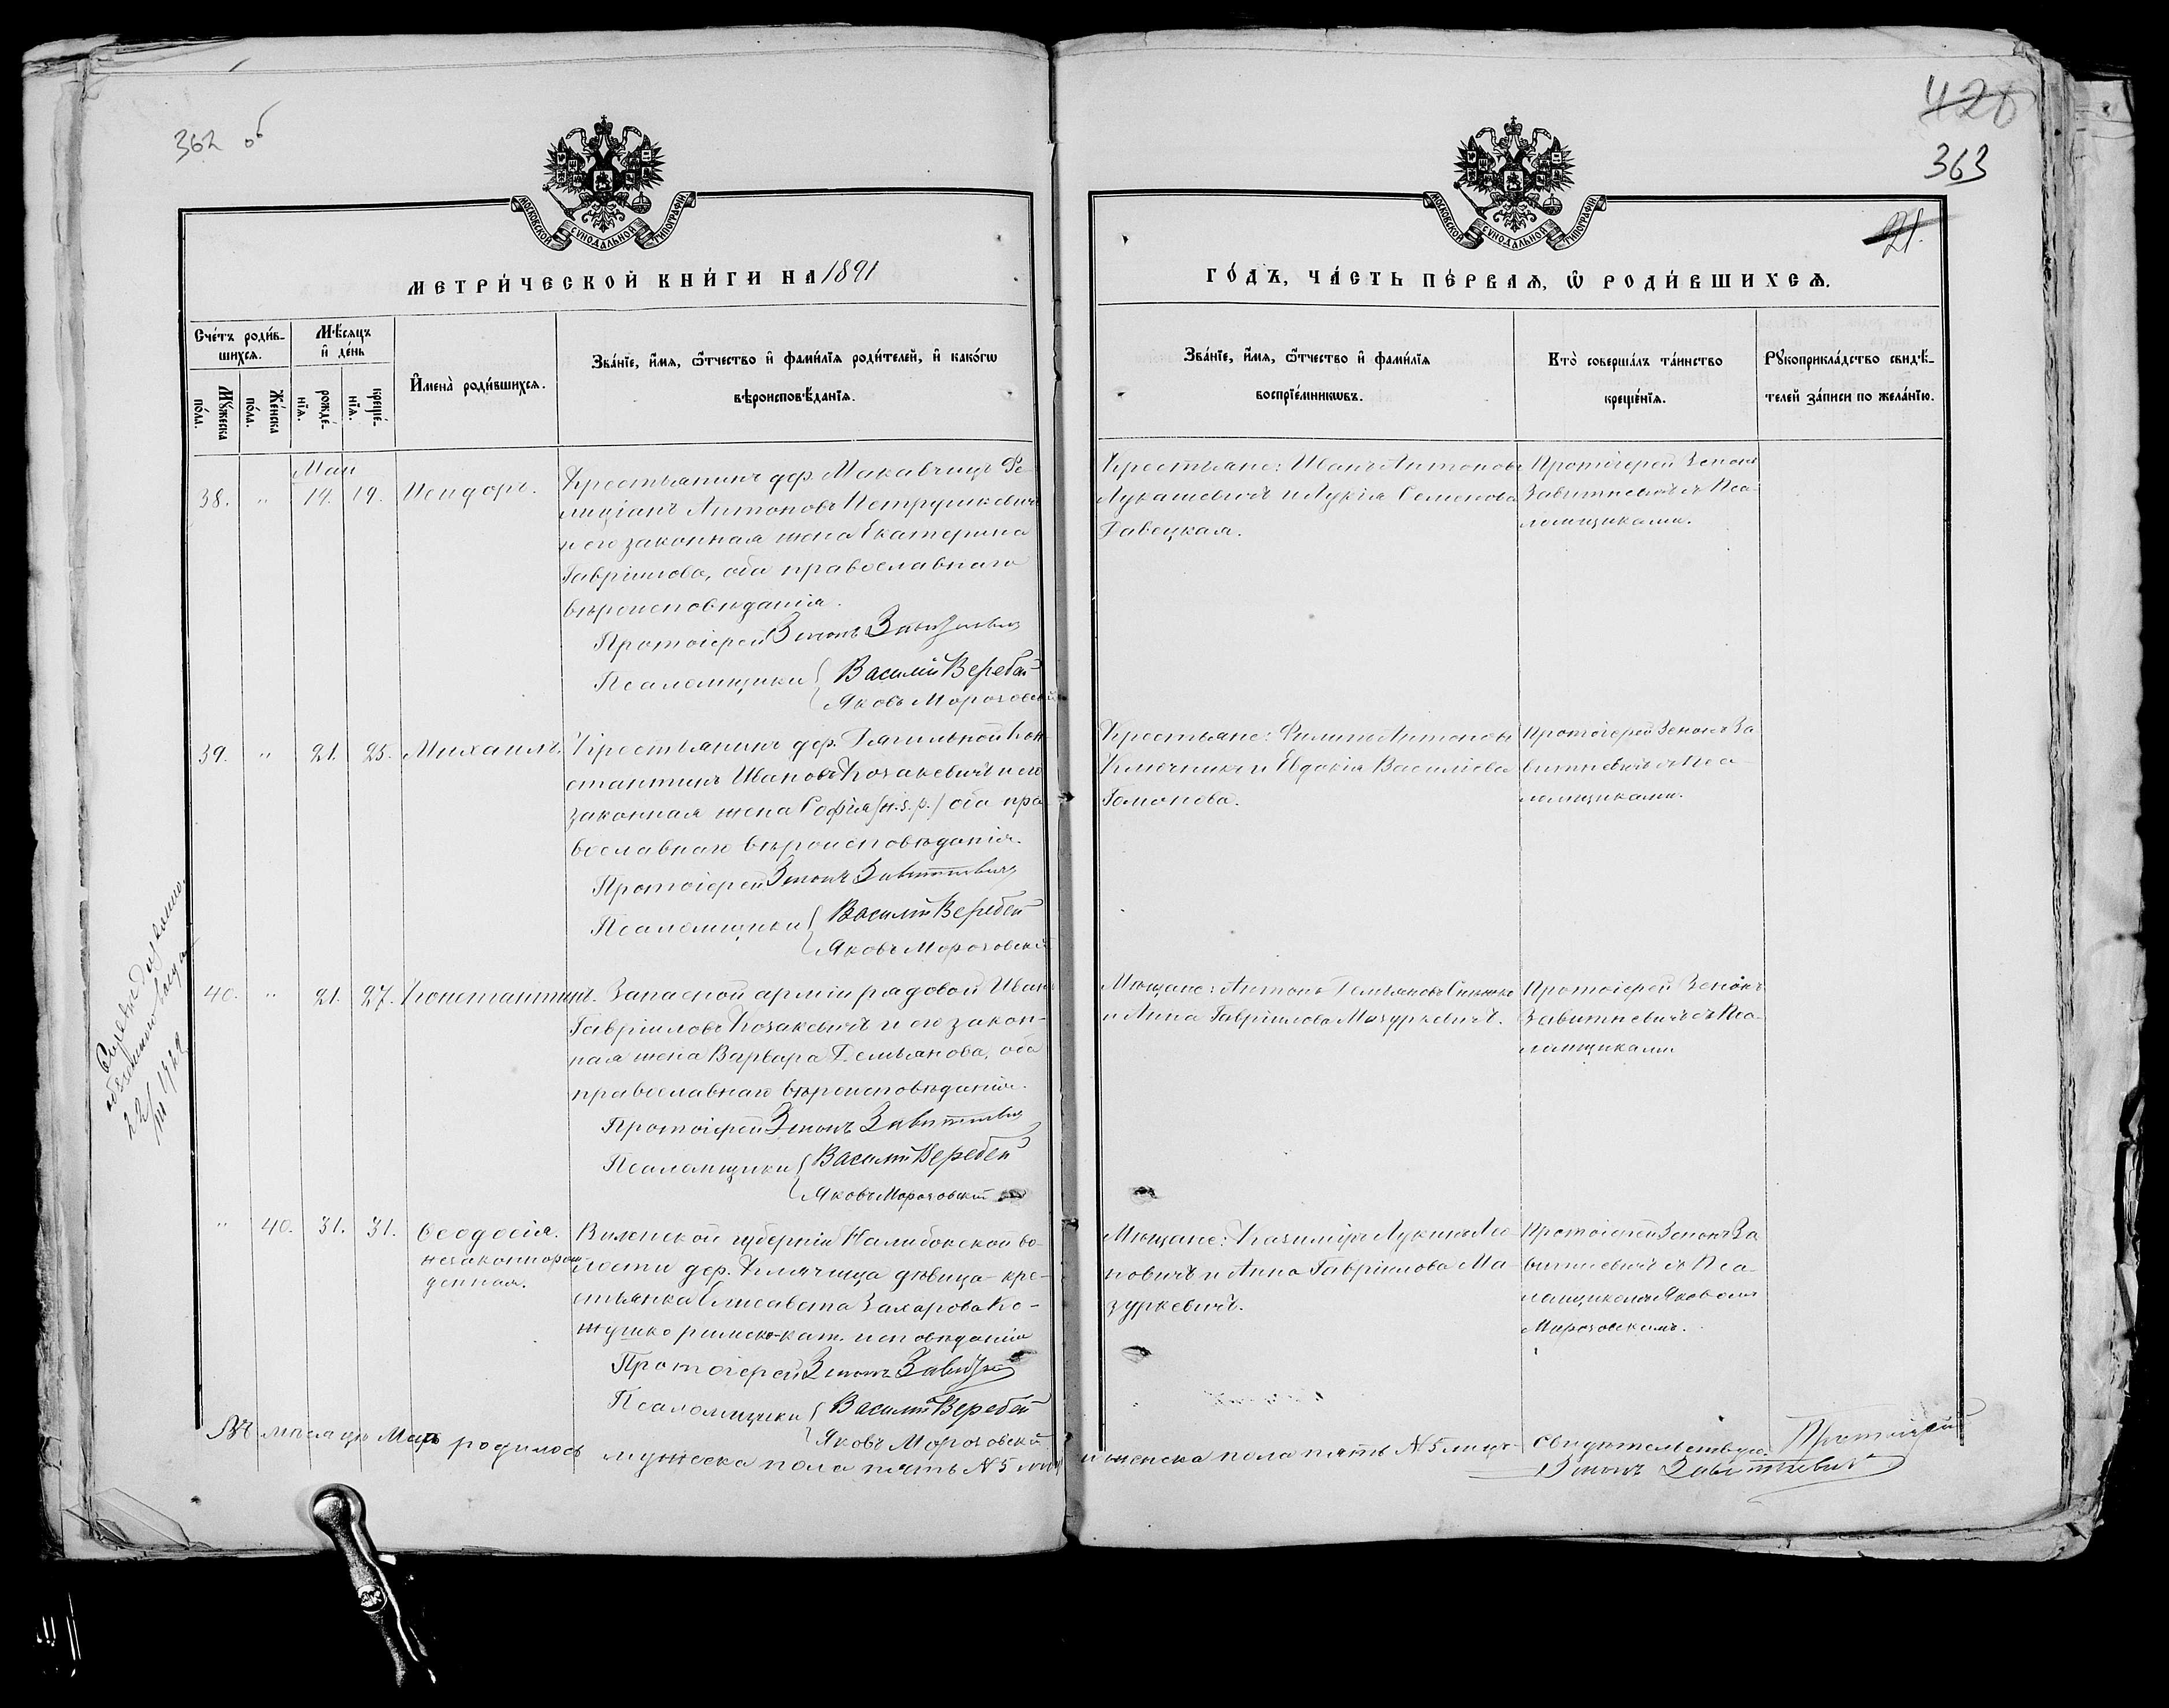 362 об
420
363
21.
МОСКОВСКОЙ СУНОДАЛЬНОЙ ТИПОГРАФІИ
МОСКОВСКОЙ СУНОДАЛЬНОЙ ТИПОГРАФІИ
МЕТРИ́ЧЕСКОЙ КНИ́ГИ НА 1891
ГО́ДЪ, ЧА́СТЬ ПЕ́РВАѦ, Ѡ РОДИ́ВШИХСѦ.
Сче́тъ роди́в-
шихсѧ.
Мꙋ́жеска по́ла.
Же́нска по́ла.
Мѣ́сѧцъ
и҆ де́нь
рожде́-
нїѧ.
креще́-
нїѧ.
И҆мена̀ роди́вшихсѧ.
Зва́нїе, и҆́мѧ, ѻ҆́тчество и҆ фами́лїѧ роди́телей, и҆ како́гѡ
вѣроисповѣ́данїѧ.
Зва́нїе, и҆́мѧ, ѻ҆́тчество и҆ фами́лїѧ
воспрїе́мникѡвъ.
Кто̀ соверша́лъ та́инство
креще́нїѧ.
Рꙋкоприкла́дство свидѣ́-
телей за́писи по жела́нїю.
Маи
38. " 19. 19. Исидоръ.
Крестьянинъ дер. Макавчицъ Фе-
лиціанъ Антоновъ Петрушкевичъ
и его законная жена Екатерина
Гавріилова, оба православнаго
вѣроисповѣданія.
Протоіерей Зенонъ Завитневичъ
Псаломщики { Василій Веребей
Яковъ Морозовскій
Крестьяне: Иванъ Антоновъ
Лукашевичъ и Лукія Семенова
Протоіерей Зенонъ
Завитневичъ съ Пса-
ломщиками.
39. " 21. 25. Михаилъ.
Крестьянинъ дер. Кон-
стантинъ Ивановъ Козакевичъ и его
законная жена Софія (н. з. р.) оба пра-
вославнаго вѣроисповѣданія.
Протоіерей Зенонъ Завитневичъ
Псаломщики { Василій Веребей
Яковъ Морозовскій
Крестьяне: Филипъ Антоновъ
Ключникъ и Евдокія Василіева
Гамонова.
Протоіерей Зенонъ За-
витневичъ съ Пса-
ломщиками.
40. " 21. 27. Константинъ.
Запасной арміи рядовой Иванъ
Гавріиловъ Козакевичъ и его закон-
ная жена Варвара Демьянова, оба
православнаго вѣроисповѣданія.
Протоіерей Зенонъ Завитневичъ
Псаломщики { Василій Веребей
Яковъ Морозовскій
Мѣщане: Антонъ Демьяновъ
и Анна Гавріилова Мазуркевичъ.
Протоіерей Зенонъ
Завитневичъ съ Пса-
ломщиками
22/III 1922
" 40. 31. 31. Ѳеодосія.
незаконнорож-
денная.
Виленской губерніи Налибокской во-
лости дер. Клячица дѣвица-кре-
стьянка Елисавета Захарова Ко-
жушко римско-кат. исповѣданія
Протоіерей Зенонъ Завитневичъ
Псаломщики { Василій Веребей
Яковъ Морозовскій
Мѣщане: Казиміръ Лукинъ Лео-
новичъ и Анна Гавріилова Ма-
зуркевичъ.
Протоіерей Зенонъ За-
витневичъ съ Пса-
ломщикомъ Яковомъ
Морозовскимъ.
Въ мѣсяцѣ Маѣ родилось мужеска пола пять № 5 лицъ и женска пола пять № 5 лицъ. Свидѣтельствую. Протоіерей
Зенонъ Завитневичъ